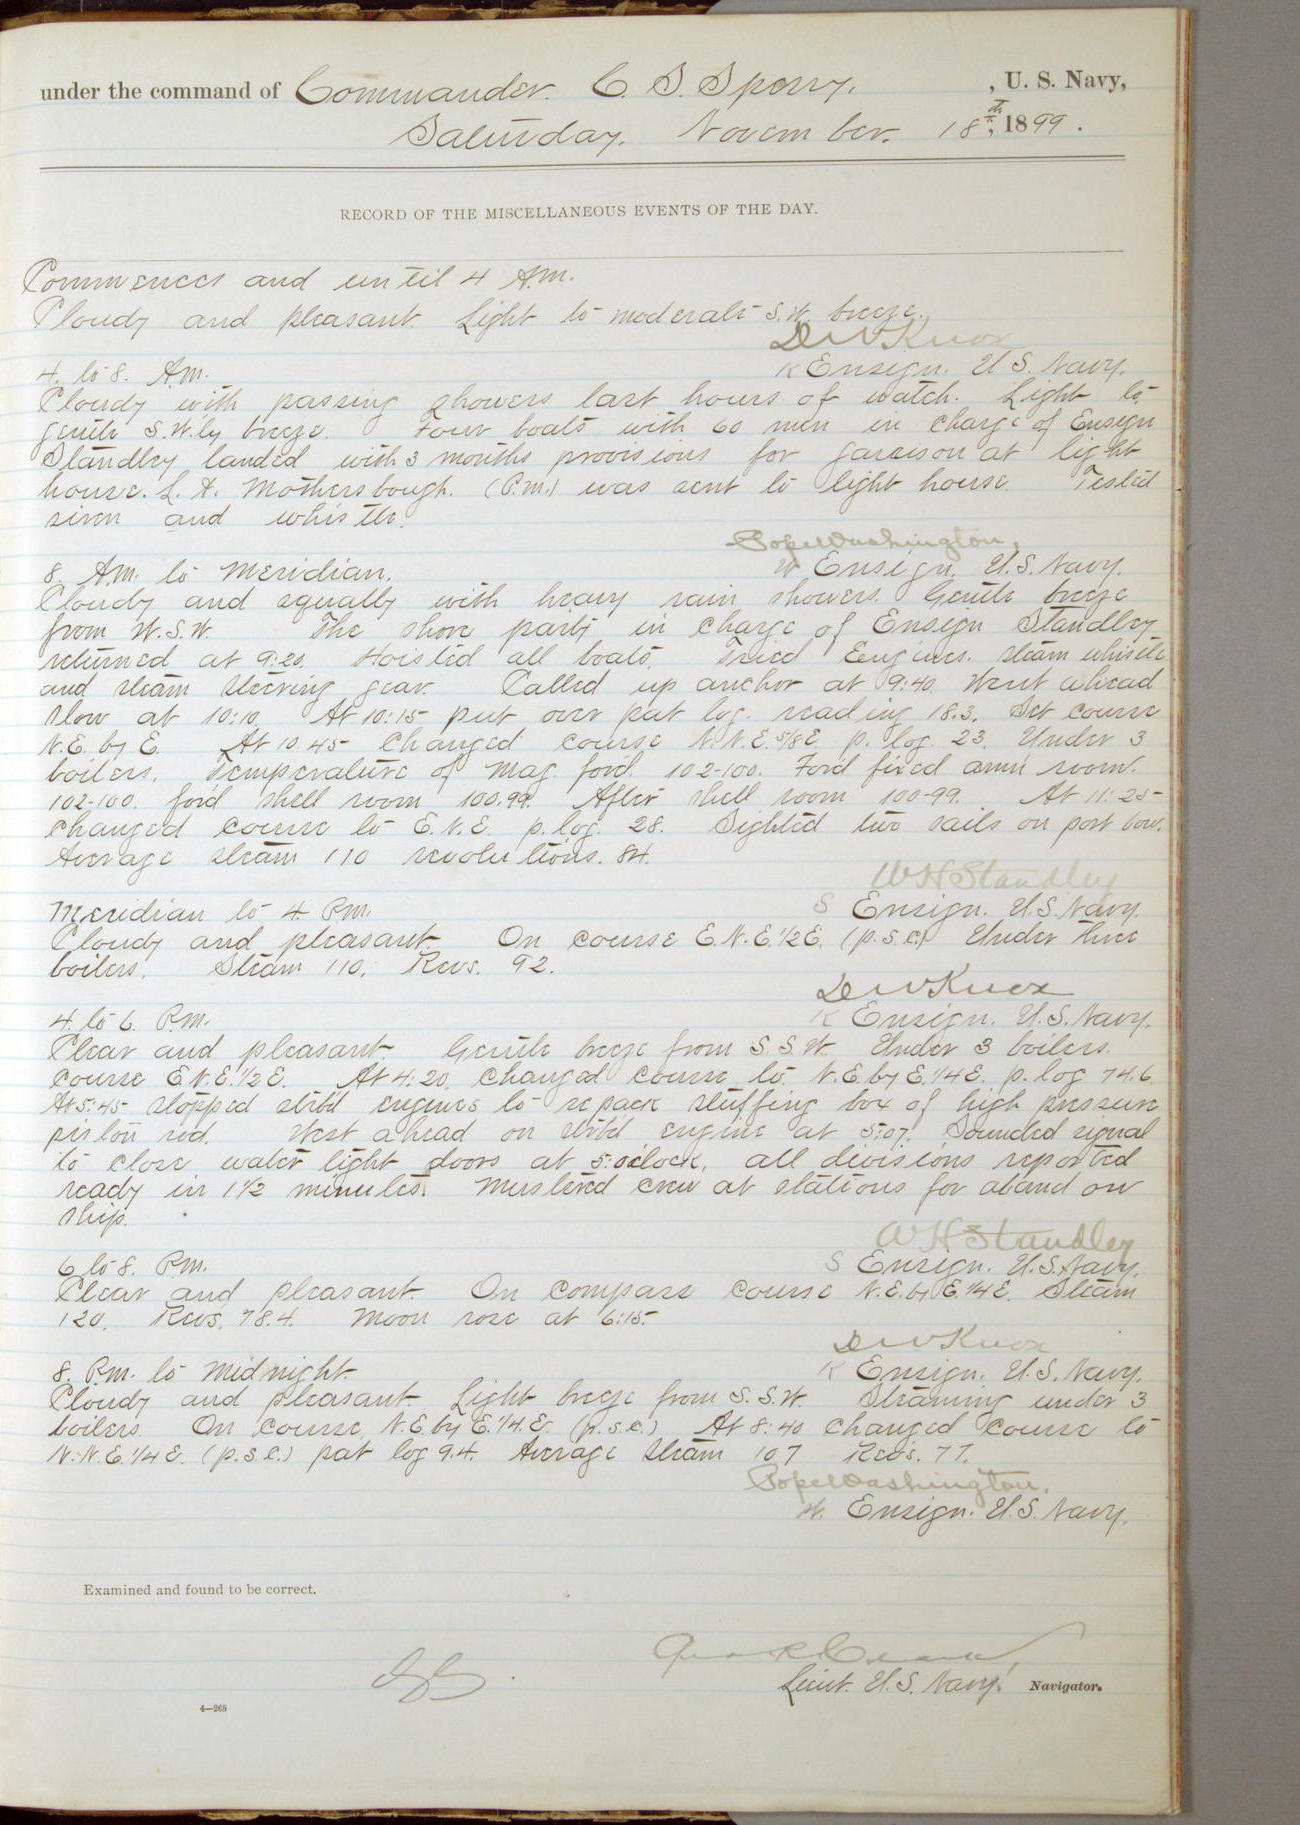 under the command of Commander. C. S. Sperry. , U. S. Navy,
Saturday. November. 18th, 1899.
RECORD OF THE MISCELLANEOUS EVENTS OF THE DAY.
Commences and until 4 A.M.
Cloudy and pleasant. Light to moderate S.W. breeze.
D W Knox
K Ensign. U.S. Navy.
4. to 8. A.M.
Cloudy with passing showers last hours of watch. Light to
gentle S.W.ly breeze. Four boats with 60 men in charge of Ensign
Standley landed with 3 months provisions for garrison at light
house. L. A. Mothersbough. (P.M.) was sent to light house. Tested
siren and whistle.
Pope Washington,
W Ensign. U.S. Navy.
8. A.M. to Meridian.
Cloudy and squally with heavy rain showers. Gentle breeze
from W.S.W. The shore party in charge of Ensign Standley
returned at 9:20. Hoisted all boats. Tried Engines. steam whistle
and steam steering gear. Called up anchor at 9:40. Went ahead
slow at 10:10. At 10:15 put over pat log. reading 18.3. Set course
N.E. by E. At 10.45 changed course N.N.E. 5/8 E. p. log. 23. Under 3
boilers. Temperature of Mag. for'd. 102-100. For'd fixed amn room.
102-100. for'd shell room 100.99. After shell room 100-99. At 11:25
changed course to E.N.E. p. log. 28. Sighted two sails on port bow.
Average steam 110 revolutions. 84.
W H Standley
S Ensign. U.S. Navy.
Meridian to 4 P.M.
Cloudy and pleasant. On course E.N.E. 1/2 E. (p.s.c.) Under three
boilers. Steam 110. Revs. 92.
D W Knox
K Ensign. U.S. Navy.
4. to 6. P.M.
Clear and pleasant. Gentle breeze from S.S.W. Under 3 boilers.
Course E N.E. 1/2 E. At 4:20. changed course to N.E. by E. 1/4 E. p. log 74.6.
At 5:45 stopped stb'd engines to repack stuffing box of high pressure
piston rod. West ahead on stb'd engine at 5:07. Sounded signal
to close water tight doors at 5: oclock. all divisions reported
ready in 1 1/2 minutes. Mustered crew at stations for aband on
ship.
W H Standley
S Ensign. U.S. Navy.
6 to 8. P.M.
Clear and pleasant. On compass course N.E. by E. 1/4 E. Steam
120. Revs. 78.4. Moon rose at 6:15.
D W Knox
K Ensign. U.S. Navy.
8. P.M. to Midnight.
Cloudy and pleasant. Light breeze from S.S.W. Steaming under 3
boilers. On course N.E. by E. 1/4 E. (p.s.c.) At 8:40 changed course to
N.N.E. 1/4 E. (p.s.c.) pat log 9.4. Average steam 107 Revs. 77.
Pope Washington.
W. Ensign. U.S. Navy.
Examined and found to be correct.
Lieut. U.S. Navy. Navigator.
4—265